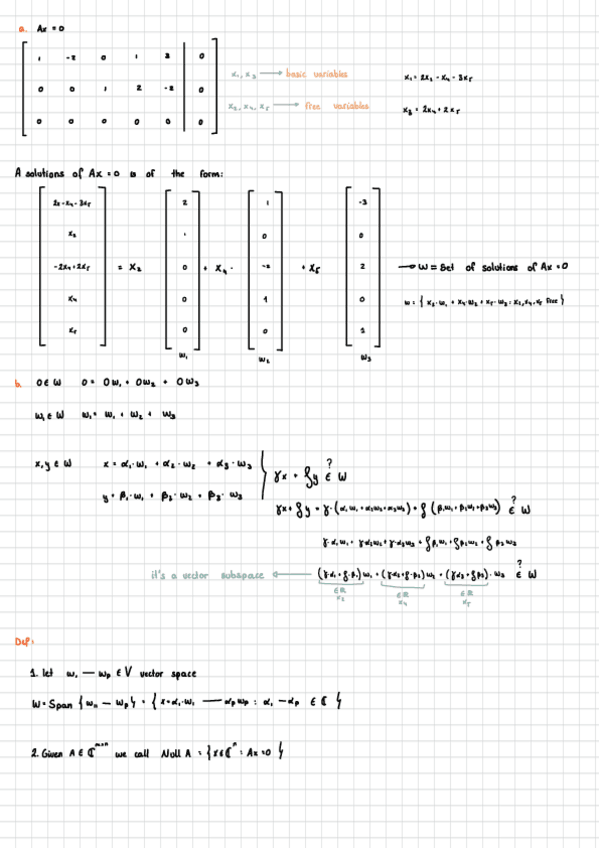 a. Ax = 0
1 -2 0 1 3 0
0 0 1 2 -2 0
0 0 0 0 0 0
x₁, x₃ → basic variables
x₂, x₄, x₅ → free variables
x₁ = 2x₂ - x₄ - 3x₅
x₃ = 2x₄ + 2x₅
A solutions of Ax = 0 is of the form:
2x - x₄ - 3x₅
x₂
-2x₄ + 2x₅
x₄
x₅
= x₂
2
1
0
0
0
w₁
+ x₄ ·
1
0
-2
1
0
w₂
+ x₅
-3
0
2
0
1
w₃
→ W = Set of solutions of Ax = 0
W = { x₂ · w₁ + x₄ · w₂ + x₅ · w₃ : x₂, x₄, x₅ free }
b. 0 ∈ W 0 = 0w₁ + 0w₂ + 0w₃
w₁ ∈ W w₁ = w₁ + w₂ + w₃
x, y ∈ W x = α₁ · w₁ + α₂ · w₂ + α₃ · w₃
y = β₁ · w₁ + β₂ · w₂ + β₃ · w₃
γx + ξy ∈? W
γx + ξy = γ · (α₁w₁ + α₂w₂ + α₃w₃) + ξ (β₁w₁ + β₂w₂ + β₃w₃) ∈? W
γ · α₁w₁ + γα₂w₂ + γ · α₃w₃ + ξβ₁w₁ + ξβ₂w₂ + ξβ₃w₃
it's a vector subspace ← (γ · α₁ + ξ · β₁) w₁ + (γα₂ + ξ · β₂) w₂ + (γα₃ + ξβ₃) · w₃ ∈? W
∈ ℝ ∈ ℝ ∈ ℝ
x₂ x₄ x₅
Def:
1. let w₁ — wₚ ∈ V vector space
W = Span { wₙ — wₚ } = { x = α₁ · w₁ — αₚwₚ : α₁ — αₚ ∈ ℂ }
2. Given A ∈ ℂᵐˣⁿ we call Null A = { x ∈ ℂⁿ : Ax = 0 }